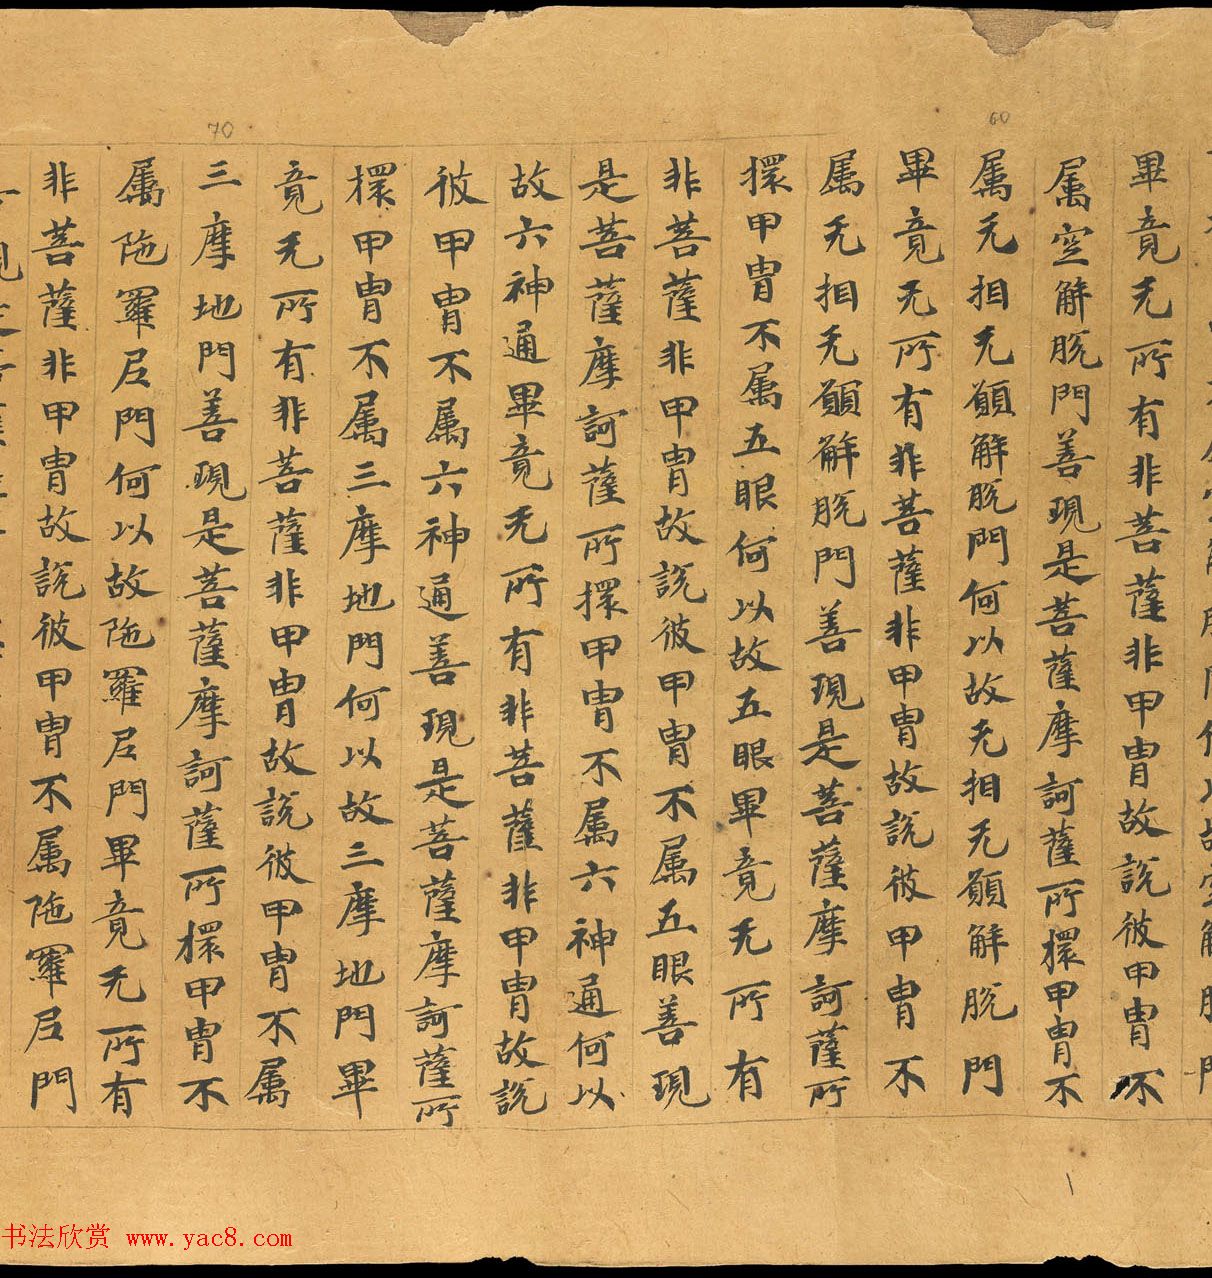 畢竟无所有非菩薩非甲冑故說彼甲冑不
属空解脫門善現是菩薩摩訶薩所擐甲冑不
60
属无相无願解脫門何以故无相无願解脫門
畢竟无所有非菩薩非甲冑故說彼甲冑不
属无相无願解脫門善現是菩薩摩訶薩所
擐甲冑不属五眼何以故五眼畢竟无所有
非菩薩非甲冑故說彼甲冑不属五眼善現
是菩薩摩訶薩所擐甲冑不属六神通何以
故六神通畢竟无所有非菩薩非甲冑故說
彼甲冑不属六神通善現是菩薩摩訶薩所
擐甲冑不属三摩地門何以故三摩地門畢
竟无所有非菩薩非甲冑故說彼甲冑不属
70
三摩地門善現是菩薩摩訶薩所擐甲冑不
属陁羅尼門何以故陁羅尼門畢竟无所有
非菩薩非甲冑故說彼甲冑不属陁羅尼門
书法欣赏 www.yac8.com